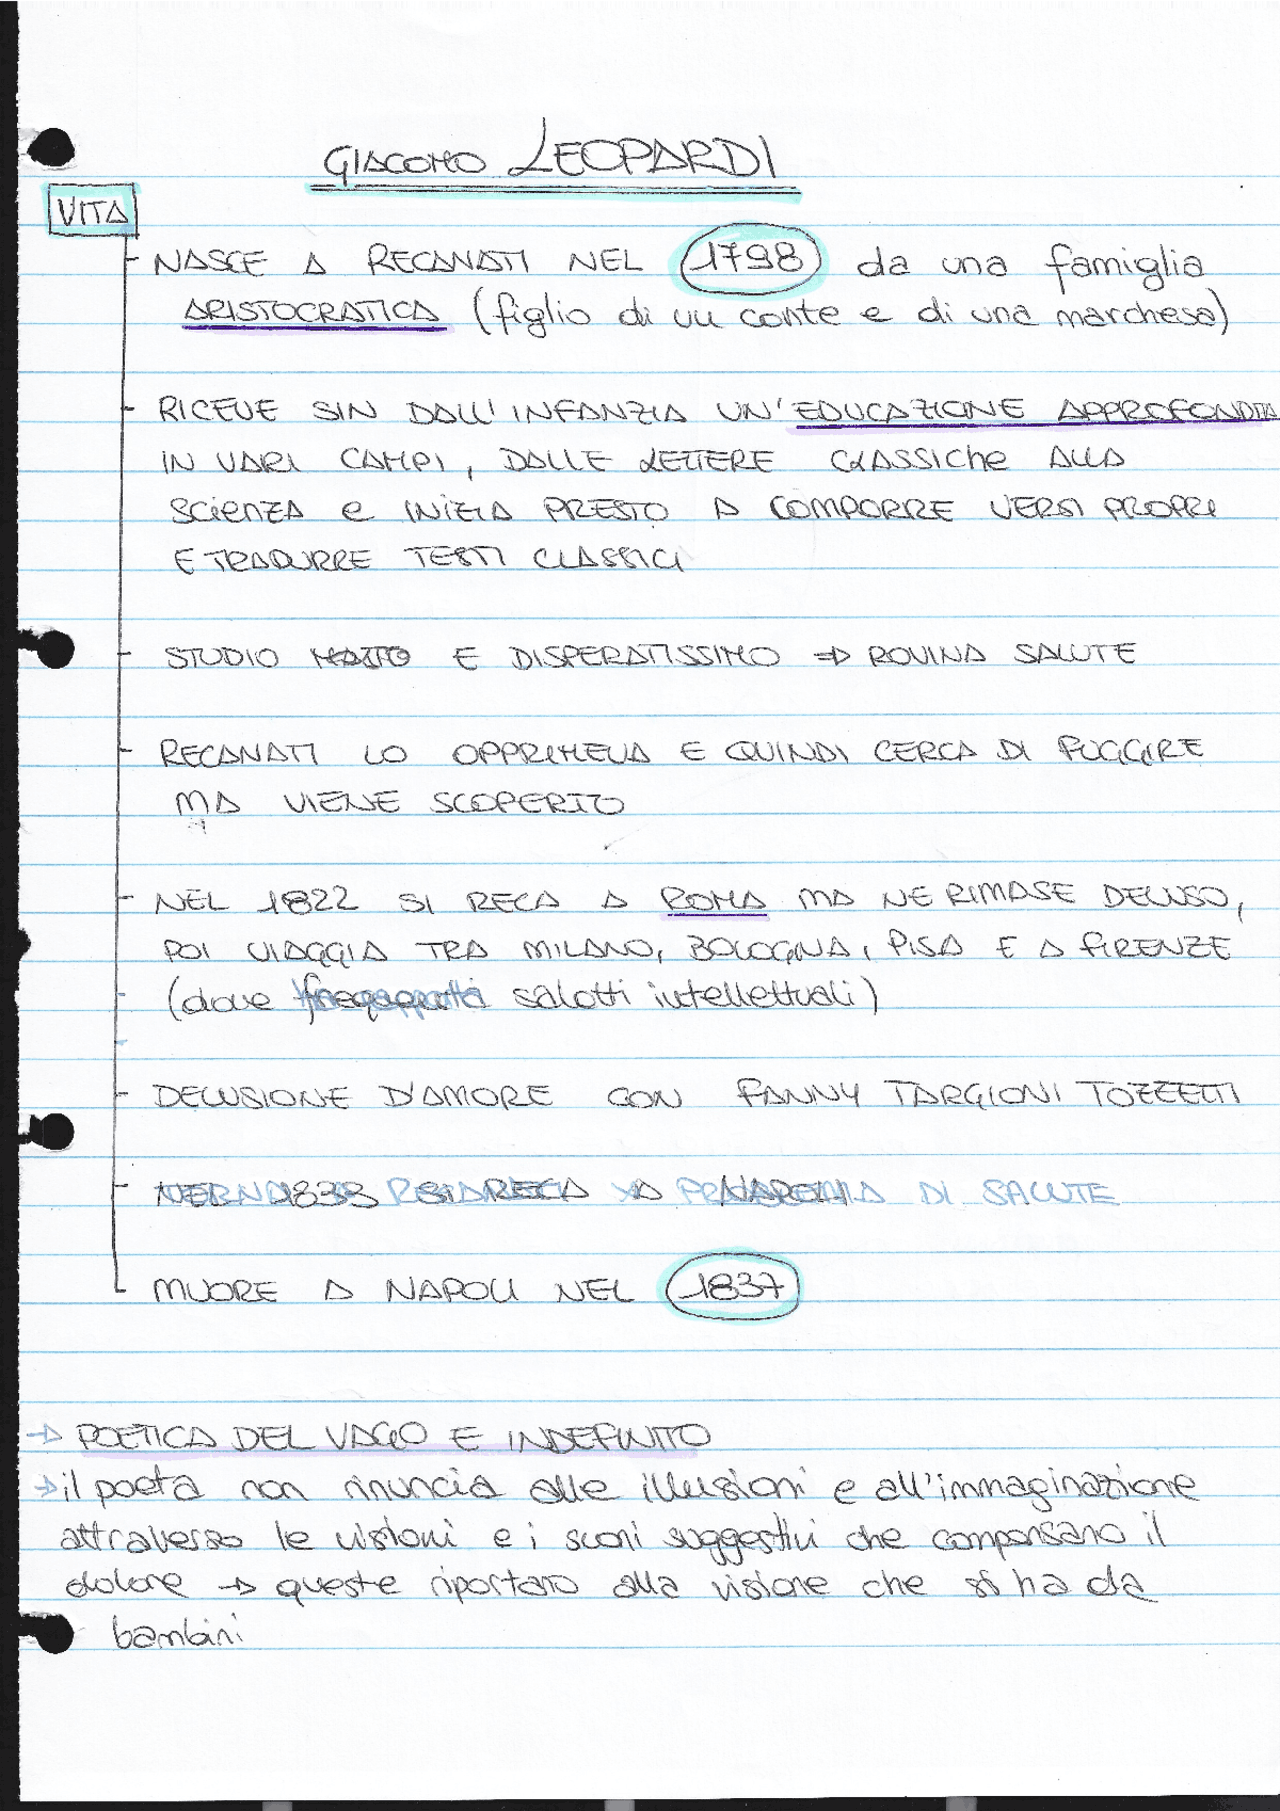 GIACOMO LEOPARDI
VITA
- NASCE A RECANATI NEL 1798 da una famiglia
ARISTOCRATICA (figlio di un conte e di una marchesa)
- RICEVE SIN DALL'INFANZIA UN'EDUCAZIONE APPROFONDITA
IN VARI CAMPI, DALLE LETTERE CLASSICHE ALLA
SCIENZA e INIZIA PRESTO A COMPORRE VERSI PROPRI
E TRADURRE TESTI CLASSICI
- STUDIO MATTO E DISPERATISSIMO ⇒ ROVINA SALUTE
- RECANATI LO OPPRIMEVA E QUINDI CERCA DI FUGGIRE
MA VIENE SCOPERTO
- NEL 1822 SI RECA A ROMA MA NE RIMASE DELUSO,
POI VIAGGIA TRA MILANO, BOLOGNA, PISA E A FIRENZE
(dove salotti intellettuali)
- DELUSIONE D'AMORE CON FANNY TARGIONI TOZZETTI
- 1833 SI RECA A NAPOLI DI SALUTE
- MUORE A NAPOLI NEL 1837
→ POETICA DEL VAGO E INDEFINITO
→ il poeta non rinuncia alle illusioni e all'immaginazione
attraverso le visioni e i suoni suggestivi che compensano il
dolore → queste riportano alla visione che si ha da
bambini